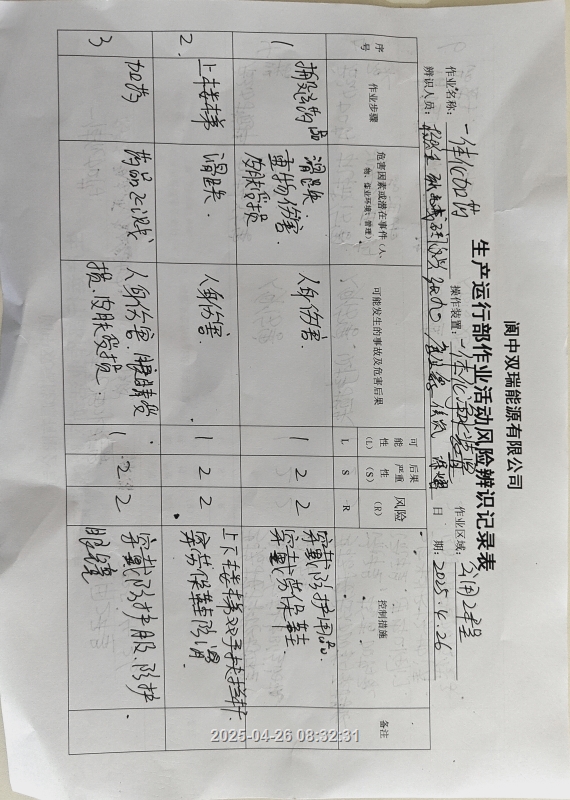 阆中双瑞能源有限公司
生产运行部作业活动风险辨识记录表
作业名称: 一体化加药 操作装置: 一体化净水装置 作业区域: 公用工程
辨识人员: 日 期: 2025.4.26
序号 作业步骤 危害因素或潜在事件(人、物、作业环境、管理) 可能发生的事故及危害后果 可能性(L) 后果严重性(S) 风险(R) 控制措施 备注
L S R
1 搬运药品 滑跌. 人身伤害. 1 2 2 穿戴防护用品.
重物伤害. 穿戴劳保鞋
皮肤毁损
2. 上楼梯 滑跌. 人身伤害. 1 2 2 上下楼梯双手扶栏杆.
穿劳保鞋防滑
3 加药 药品飞溅 人身伤害 眼睛受 1 2 2 穿戴防护服.防护
损.皮肤毁损. 眼镜.
2025-04-26 08:32:31